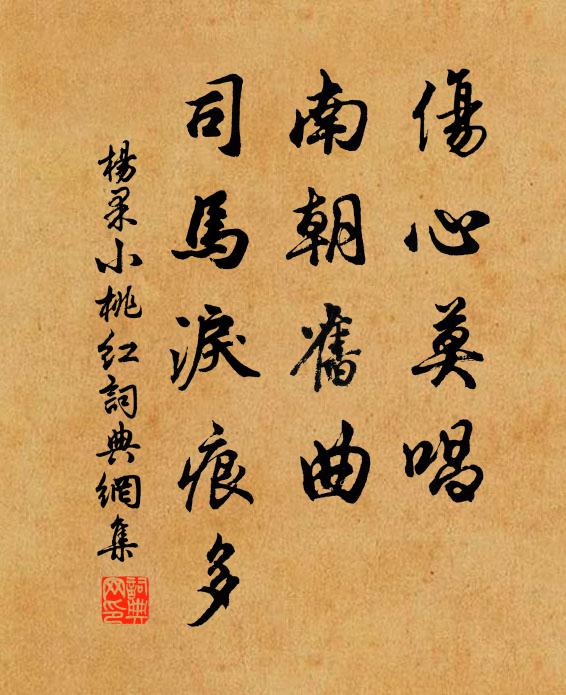 傷心莫唱
南朝舊曲
司馬淚痕多
楊果小桃红詞典網集
詞典
网印